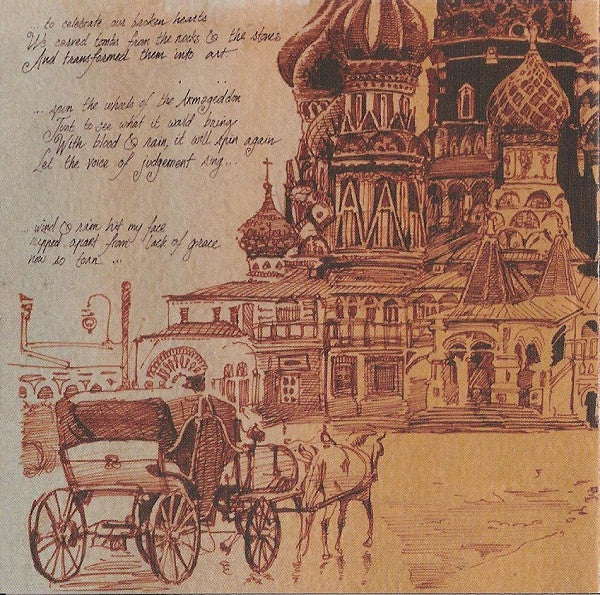 ... to celebrate our broken hearts
We carved tombs from the rocks & the stones
And transformed them into art.
... spin the wheels of the Armageddon
Just to see what it would bring
With blood & rain, it will spin again
Let the voice of judgement sing...
... wind & rain hit my face
ripped apart from lack of grace
now so torn ...